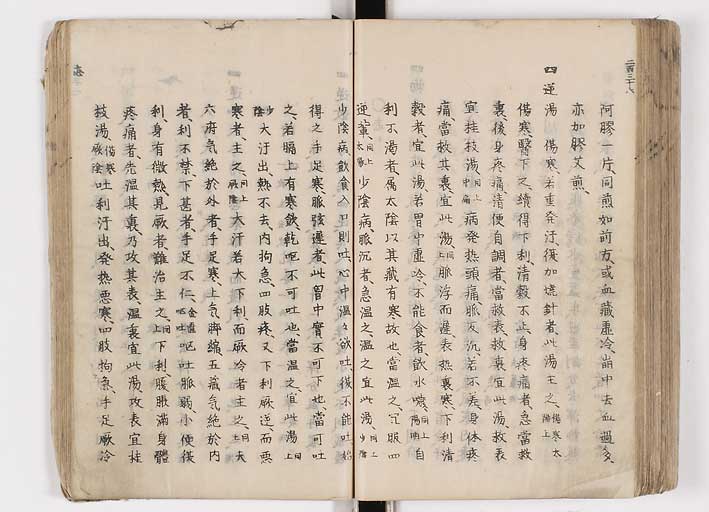 阿膠一片同煎如前方或血藏虛冷崩中去血過多
亦加膠艾煎
四逆湯 傷寒若重発汗復加燒針者此湯主之 傷寒太陽上
傷寒醫下之續得下利清穀不止身疼痛者急當救
裏後身疼痛清便自調者當救表救裏宜此湯救表
宜桂枝湯 同上中扁 病発热頭痛脈反沉若不差身体疼
痛當救其裏宜此湯 同上 脈浮而遲表热裏寒下利清
穀者宜此湯若胃中虛冷不能食者飲水噦 同上陽明 自
利不渴者属太陰以其藏有寒故也當温之冝服四
逆軰 同上太陰 少陰病脈沉者急温之温之宜此湯 同上少陰
少陰病飲食入口則吐心中温々欲吐復不能吐始
得之手足寒脈弦遲者此胃中實不可下也當可吐
之若膈上有寒飲乾呕不可吐也當温之宜此湯 同上
少陰 大汗出热不去内拘急四肢疼又下利厥逆而悪
寒者主之 同上厥陰 大汗若大下利而厥冷者主之 同上 夫
六府気絶於外者手足寒上気脚縮五藏気絶於内
者利不禁下甚者手足不仁 金匱呕吐 呕吐脈弱小便復
利身有微热見厥者難治主之 同上 下利腹脹滿身體
疼痛者先温其裏乃攻其表温裏宜此湯攻表宜桂
枝湯 傷寒厥陰 吐利汗出発热悪寒四肢拘急手足厥冷